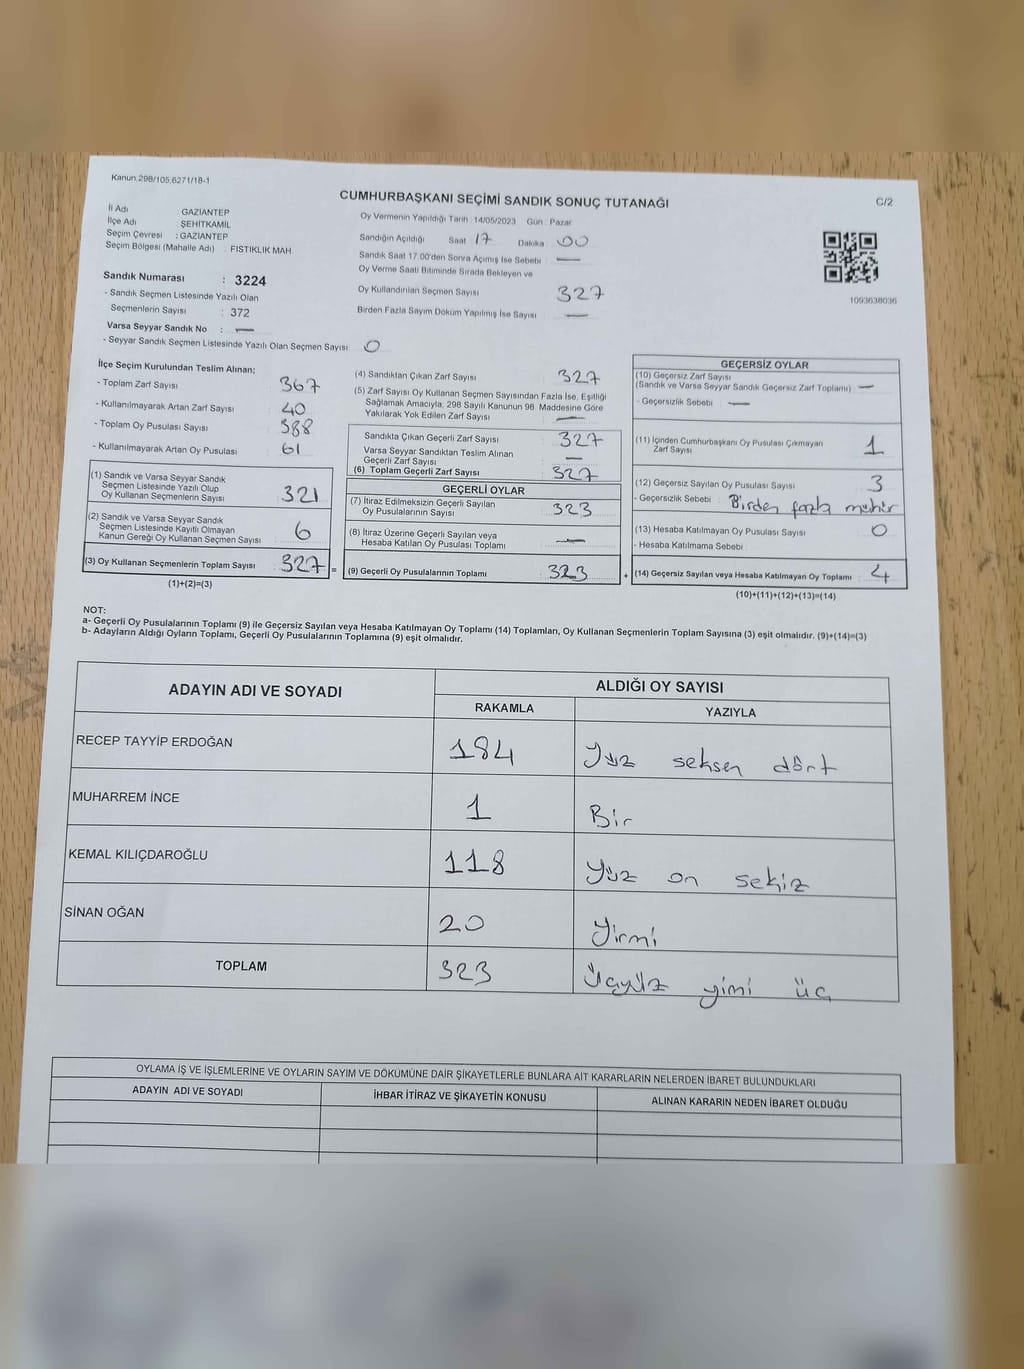 Kanun.298/105,6271/18-1
CUMHURBAŞKANI SEÇİMİ SANDIK SONUÇ TUTANAĞI
C/2
İl Adı GAZİANTEP
İlçe Adı ŞEHİTKAMİL
Seçim Çevresi : GAZİANTEP
Seçim Bölgesi (Mahalle Adı) : FISTIKLIK MAH
Sandık Numarası : 3224
- Sandık Seçmen Listesinde Yazılı Olan
Seçmenlerin Sayısı : 372
Varsa Seyyar Sandık No : —
- Seyyar Sandık Seçmen Listesinde Yazılı Olan Seçmen Sayısı 0
Oy Vermenin Yapıldığı Tarih : 14/05/2023 Gün : Pazar
Sandığın Açıldığı Saat 17 Dakika 00
Sandık Saat 17.00'den Sonra Açımış İse Sebebi —
Oy Verme Saati Bitiminde Sırada Bekleyen ve
Oy Kullandırılan Seçmen Sayısı 327
Birden Fazla Sayım Döküm Yapılmış İse Sayısı —
1093638036
İlçe Seçim Kurulundan Teslim Alınan;
- Toplam Zarf Sayısı 367
- Kullanılmayarak Artan Zarf Sayısı 40
- Toplam Oy Pusulası Sayısı 388
- Kullanılmayarak Artan Oy Pusulası 61
(1) Sandık ve Varsa Seyyar Sandık
Seçmen Listesinde Yazılı Olup
Oy Kullanan Seçmenlerin Sayısı 321
(2) Sandık ve Varsa Seyyar Sandık
Seçmen Listesinde Kayıtlı Olmayan
Kanun Gereği Oy Kullanan Seçmen Sayısı 6
(3) Oy Kullanan Seçmenlerin Toplam Sayısı 327 =
(1)+(2)=(3)
(4) Sandıktan Çıkan Zarf Sayısı 327
(5) Zarf Sayısı Oy Kullanan Seçmen Sayısından Fazla İse, Eşitliği
Sağlamak Amacıyla, 298 Sayılı Kanunun 98. Maddesine Göre
Yakılarak Yok Edilen Zarf Sayısı —
Sandıkta Çıkan Geçerli Zarf Sayısı 327
Varsa Seyyar Sandıktan Teslim Alınan
Geçerli Zarf Sayısı —
(6) Toplam Geçerli Zarf Sayısı 327
GEÇERLİ OYLAR
(7) İtiraz Edilmeksizin Geçerli Sayılan
Oy Pusulalarının Sayısı 323
(8) İtiraz Üzerine Geçerli Sayılan veya
Hesaba Katılan Oy Pusulası Toplamı —
(9) Geçerli Oy Pusulalarının Toplamı 323 +
GEÇERSİZ OYLAR
(10) Geçersiz Zarf Sayısı
(Sandık ve Varsa Seyyar Sandık Geçersiz Zarf Toplamı) —
- Geçersizlik Sebebi : —
(11) İçinden Cumhurbaşkanı Oy Pusulası Çıkmayan
Zarf Sayısı 1
(12) Geçersiz Sayılan Oy Pusulası Sayısı 3
- Geçersizlik Sebebi : Birden fazla mühür
(13) Hesaba Katılmayan Oy Pusulası Sayısı 0
- Hesaba Katılmama Sebebi
(14) Geçersiz Sayılan veya Hesaba Katılmayan Oy Toplamı 4
(10)+(11)+(12)+(13)=(14)
NOT:
a- Geçerli Oy Pusulalarının Toplamı (9) ile Geçersiz Sayılan veya Hesaba Katılmayan Oy Toplamı (14) Toplamları, Oy Kullanan Seçmenlerin Toplam Sayısına (3) eşit olmalıdır. (9)+(14)=(3)
b- Adayların Aldığı Oyların Toplamı, Geçerli Oy Pusulalarının Toplamına (9) eşit olmalıdır.
ADAYIN ADI VE SOYADI
ALDIĞI OY SAYISI
RAKAMLA YAZIYLA
RECEP TAYYİP ERDOĞAN 184 Yüz seksen dört
MUHARREM İNCE 1 Bir
KEMAL KILIÇDAROĞLU 118 Yüz on sekiz
SİNAN OĞAN 20 Yirmi
TOPLAM 323 Üçyüz yimi üç
OYLAMA İŞ VE İŞLEMLERİNE VE OYLARIN SAYIM VE DÖKÜMÜNE DAİR ŞİKAYETLERLE BUNLARA AİT KARARLARIN NELERDEN İBARET BULUNDUKLARI
ADAYIN ADI VE SOYADI İHBAR İTİRAZ VE ŞİKAYETİN KONUSU ALINAN KARARIN NEDEN İBARET OLDUĞU